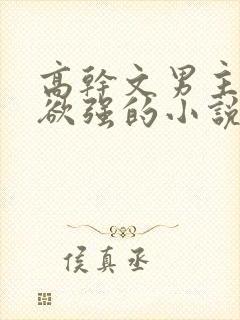 高幹文男主
欲强的小說
侯真丞